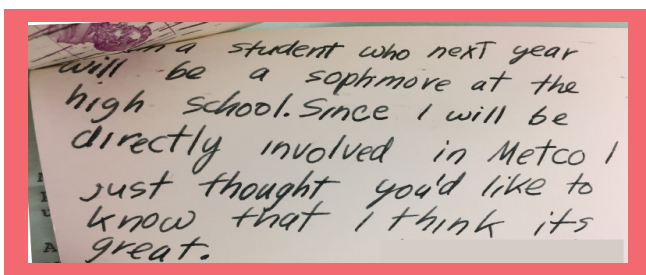 I'm a student who next year
will be a sophmore at the
high school. Since I will be
directly involved in Metco I
just thought you'd like to
know that I think its
great.